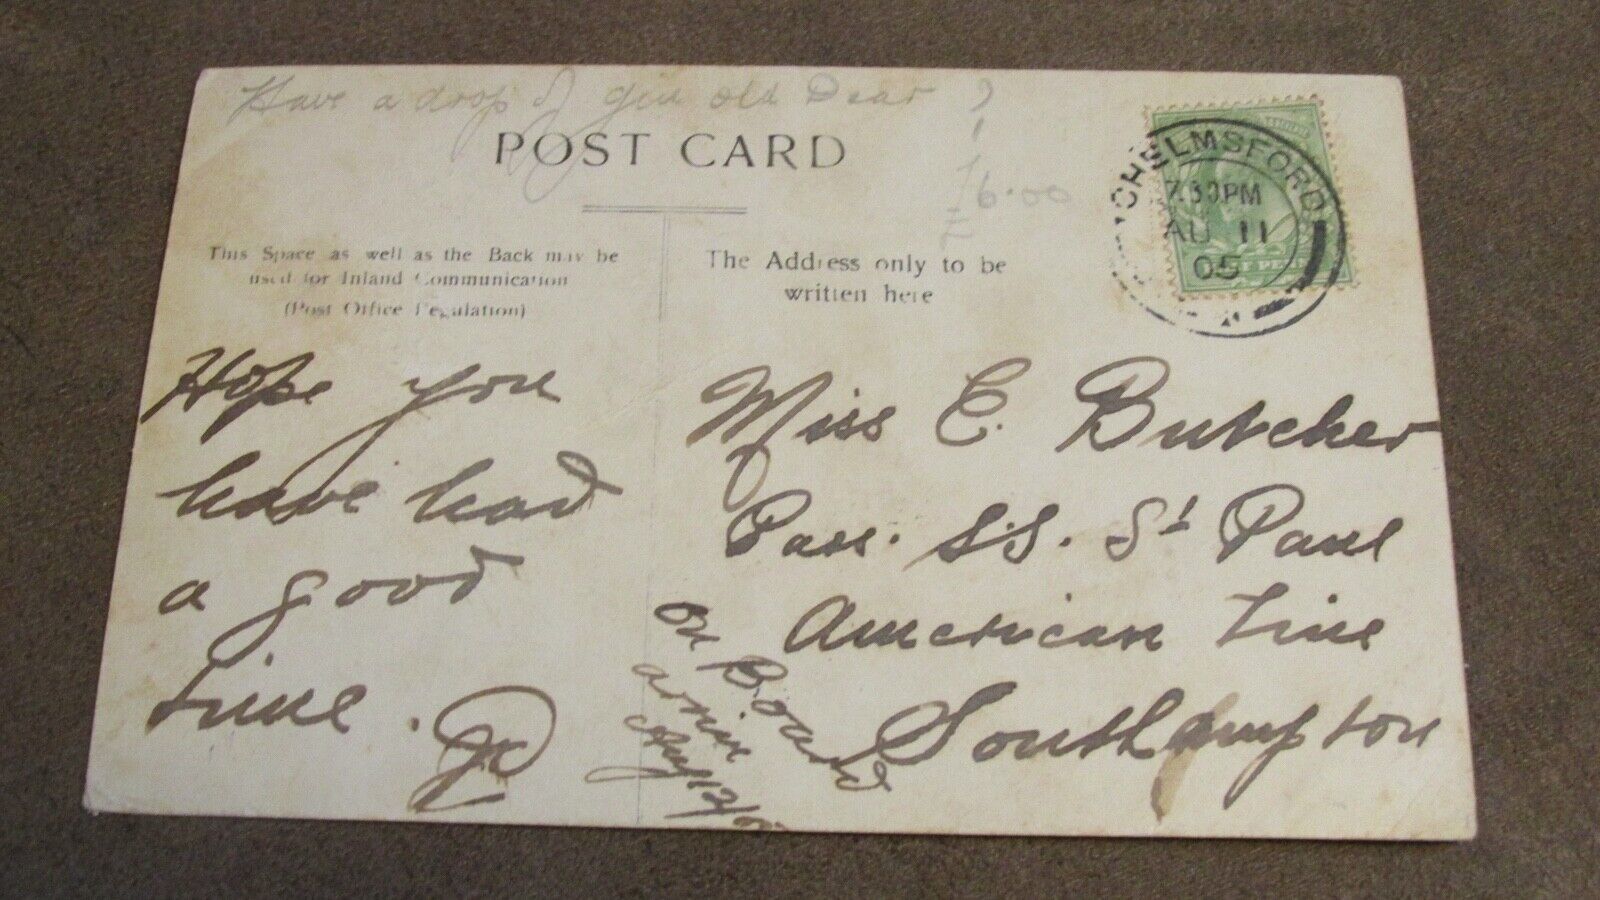 Have a drop of gin old Dear
POST CARD
6.00
This Space as well as the Back may be
used for Inland Communication
(Post Office Regulation)
The Address only to be
written here
CHELMSFORD
7.30PM
AU 11
05
Hope you
have had
a good
time.
Miss E. Butcher
Pass. S.S. St Paul
American Line
Southampton
on Board
Aug 12/05